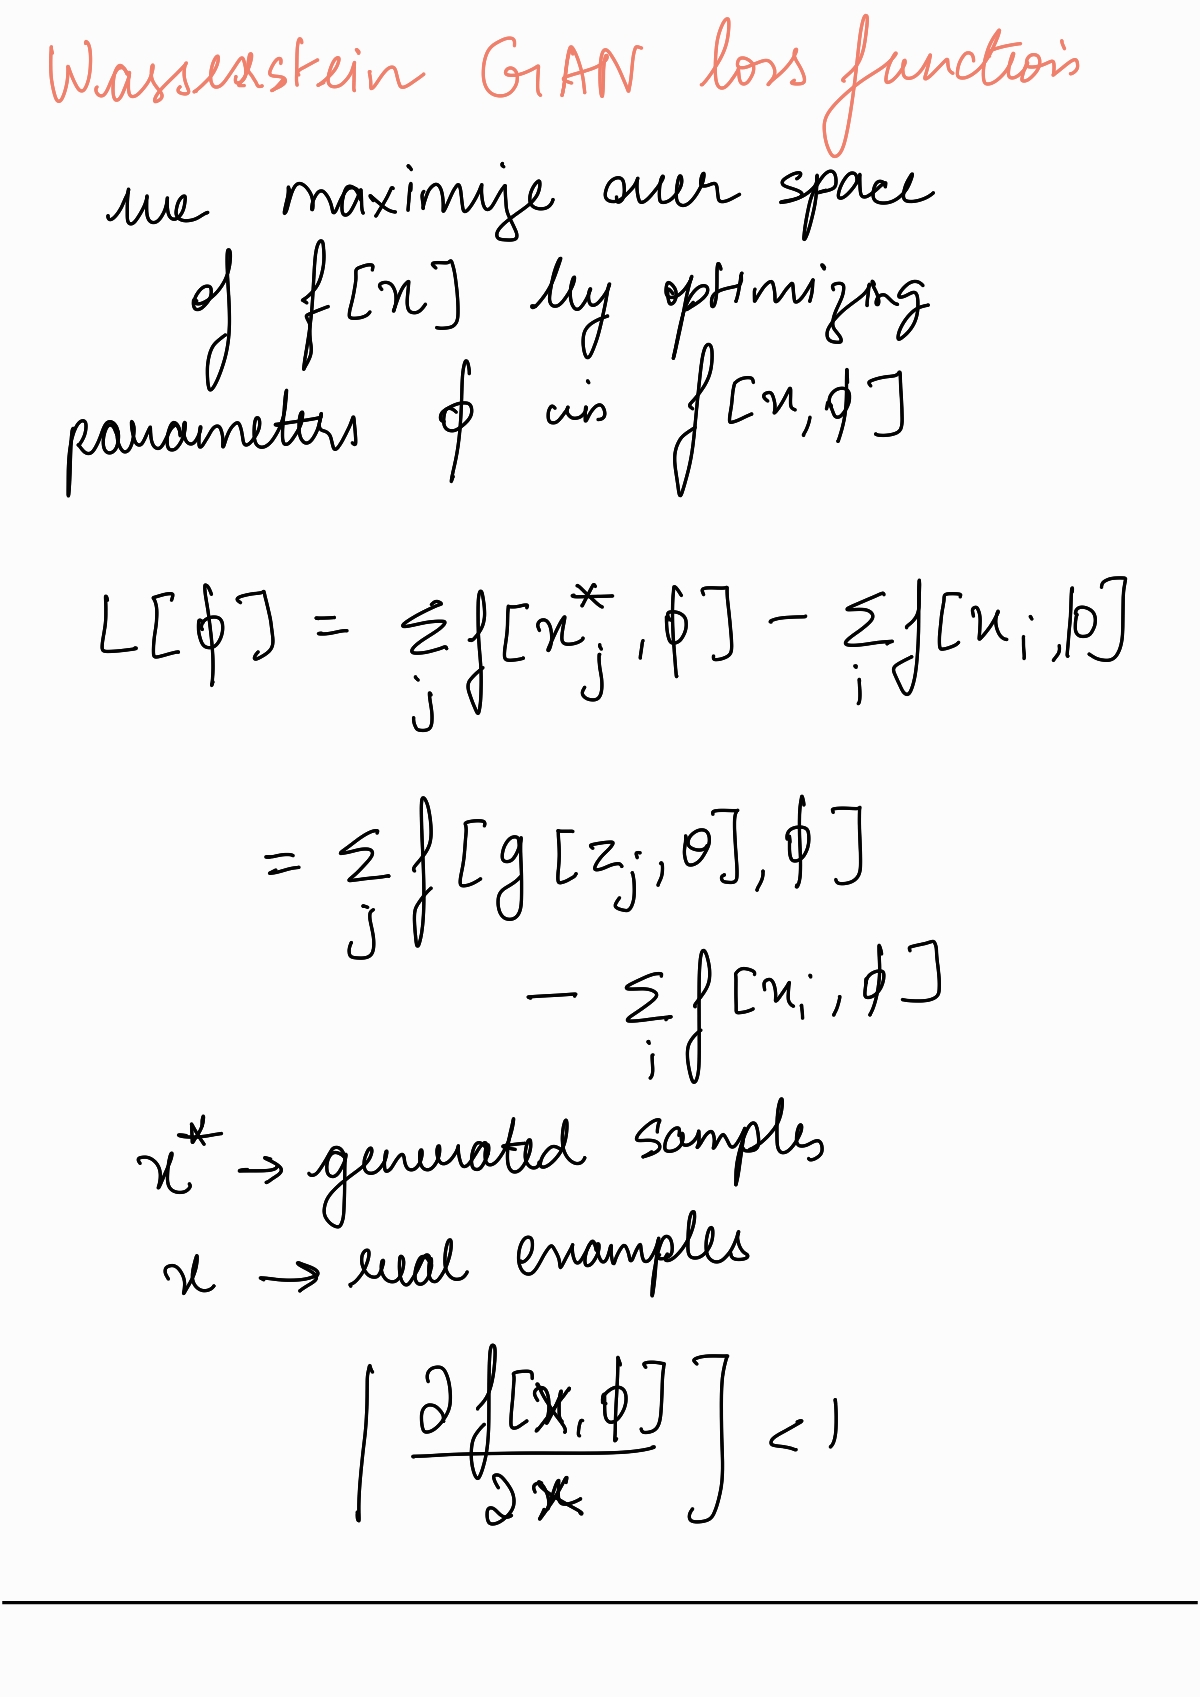 Wasserstein GAN loss function
we maximize over space
of f[x] by optimizing
parameters ϕ in f[x,ϕ]
L[ϕ] = ∑_j f[x*_j, ϕ] − ∑_i f[x_i, ϕ]
= ∑_j f[g[z_j, θ], ϕ]
− ∑_i f[x_i, ϕ]
x* → generated samples
x → real examples
| ∂f[x, ϕ] / ∂x ] < 1